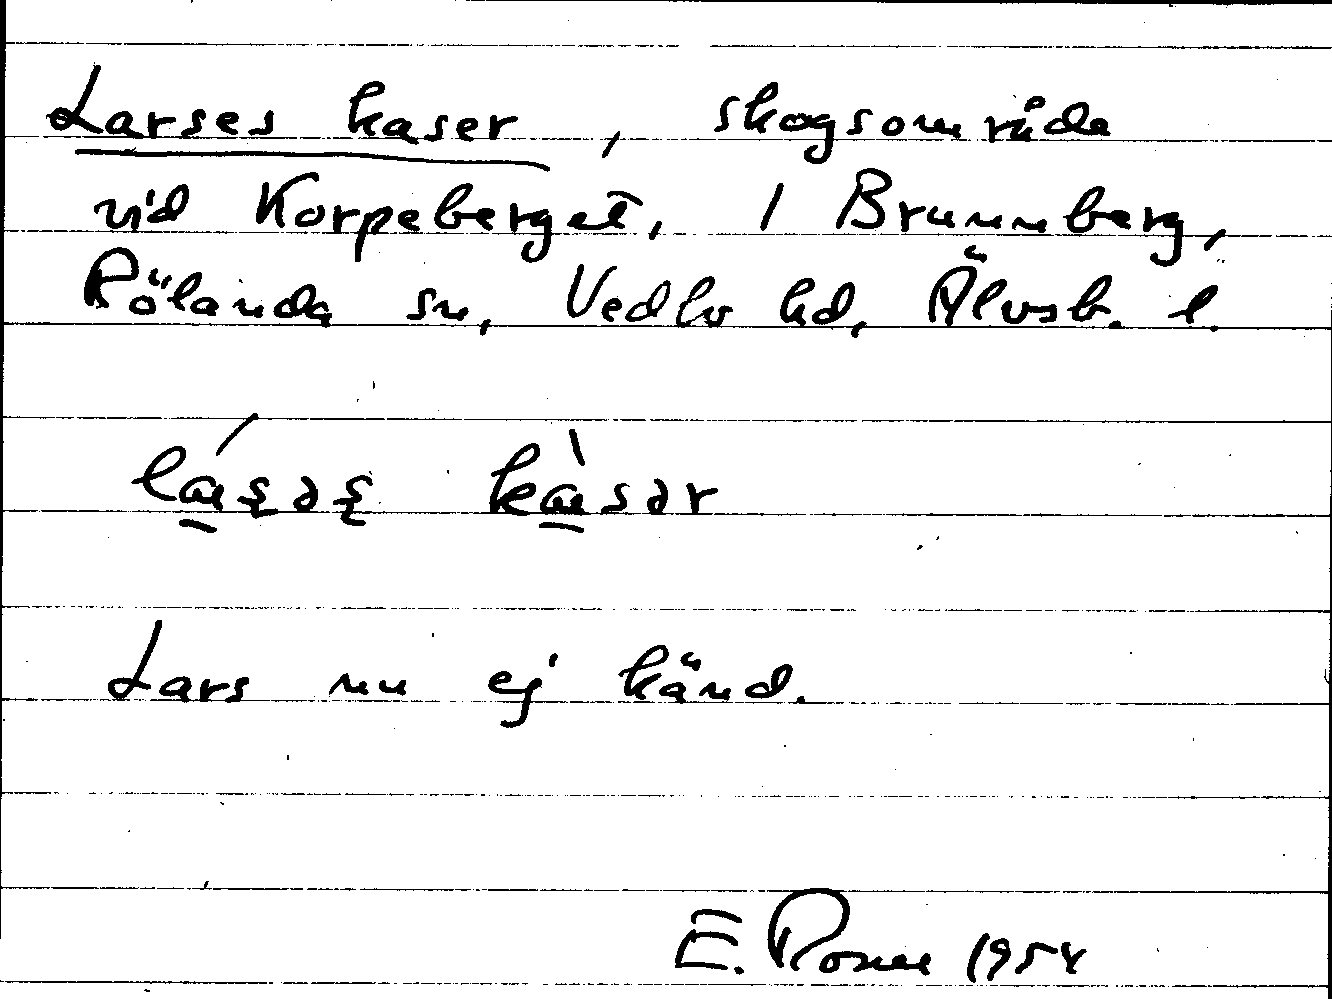 Larses kaser, skogsområde
vid Korpeberget, 1 Brunnberg,
Rölanda sn, Vedbo hd, Älvsb. l.
Lars nu ej känd.
E. 1954